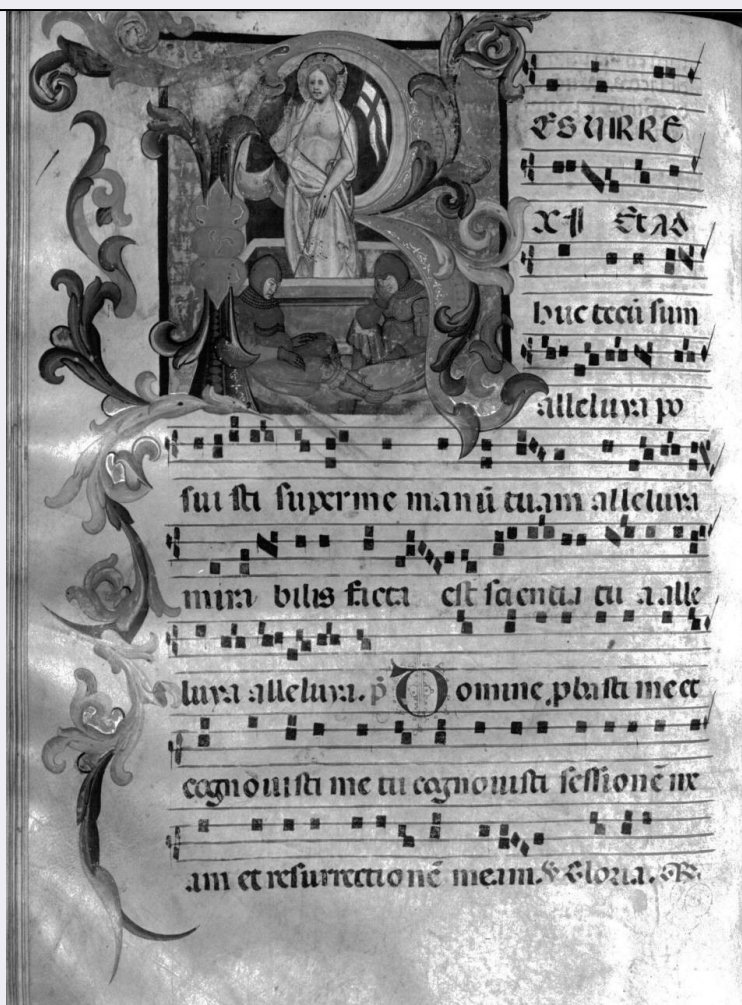 ESURRE
XI ET AD
huc tecū sum
alleluya po
sui sti super me manū tuam alleluya
mira bilis facta est sciencia tu a alle
luya alleluya. p̄ Domine pbasti me et
cognouisti me tu cognouisti sessionē me
am et resurrectionē meam. V Gloria.